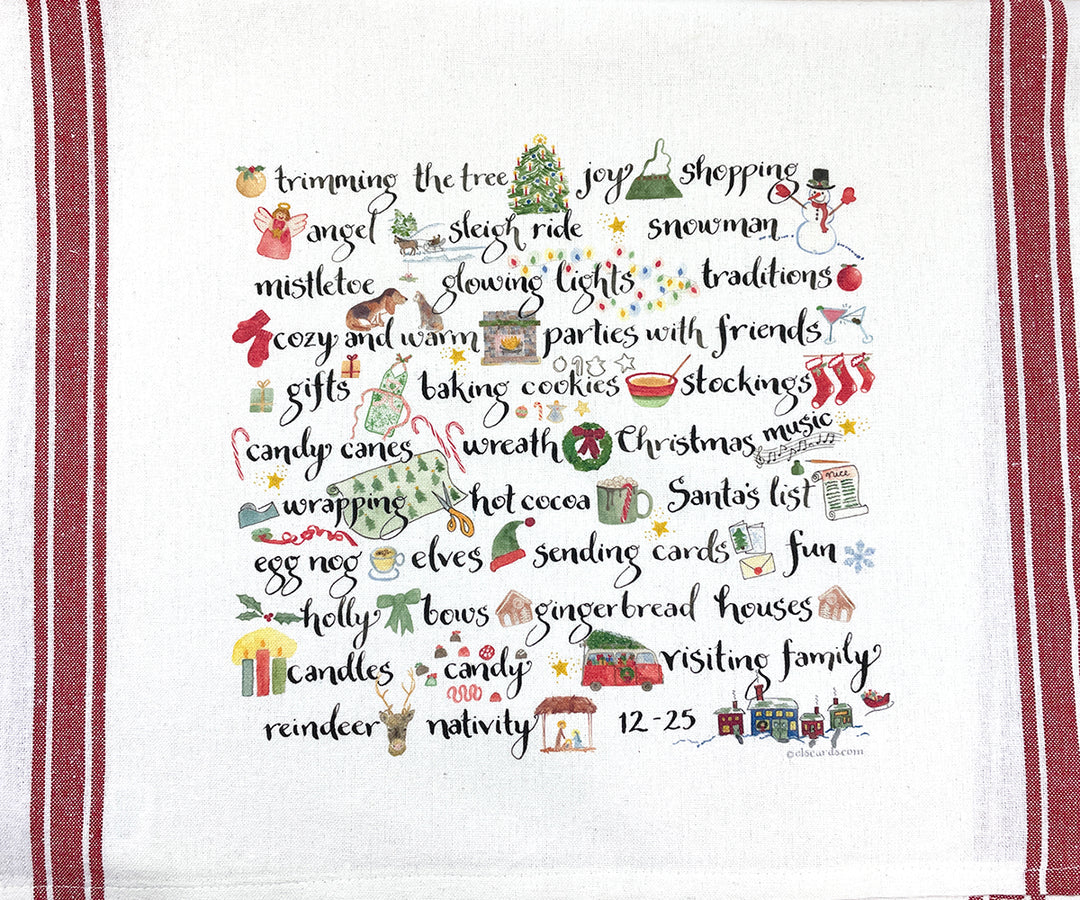 trimming the tree joy shopping
angel sleigh ride snowman
mistletoe glowing lights traditions
cozy and warm parties with friends
gifts baking cookies stockings
candy canes wreath Christmas music
wrapping hot cocoa Santa's list nice
egg nog elves sending cards fun
holly bows gingerbread houses
candles candy visiting family
reindeer nativity 12-25
©clscards.com